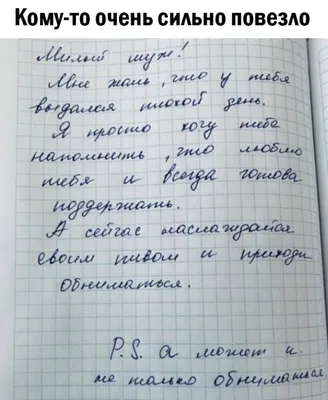 Кому-то очень сильно повезло
Милый муж!
Мне жаль, что у тебя
выдался плохой день.
Я просто хочу тебе
напомнить, что люблю
тебя и всегда готова
поддержать.
А сейчас наслаждайся
своим пивом и приходи
обниматься.
P.S. а может и
не только обниматься.